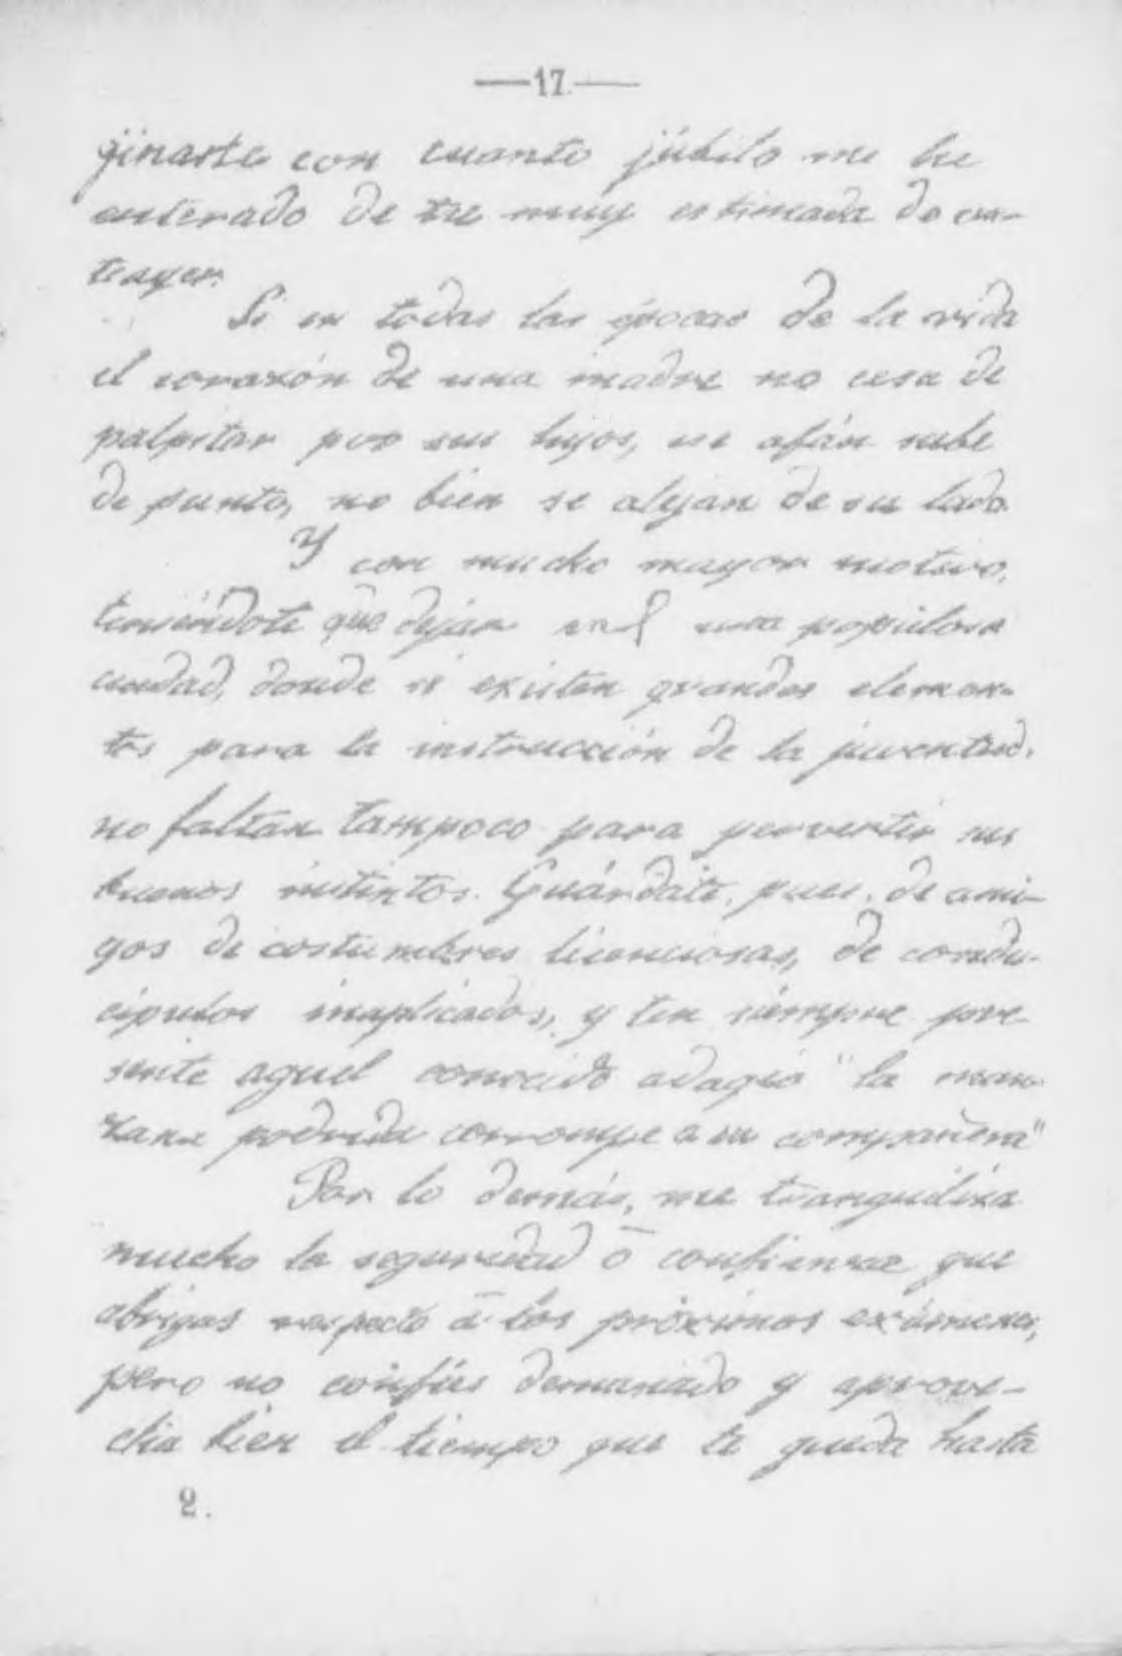 —17—
ginarte con cuanto júbilo me he
enterado de tu muy estimada de an-
teayer.
Si en todas las épocas de la vida
el corazón de una madre no cesa de
palpitar por sus hijos, ese afán sube
de punto, no bien se alejan de su lado.
Y con mucho mayor motivo,
teniéndote que dejar en una populosa
ciudad, donde si existen grandes elemen-
tos para la instrucción de la juventud,
no faltan tampoco para pervertir sus
buenos instintos. Guárdate, pues, de ami-
gos de costumbres licenciosas, de condis-
cípulos inaplicados, y ten siempre pre-
sente aquel conocido adagio "la man-
zana podrida corrompe a su compañera"
Por lo demás, me tranquiliza
mucho la seguridad ó confianza que
abrigas respecto á los próximos exámenes,
pero no confíes demasiado y aprove-
cha bien el tiempo que te queda hasta
2.